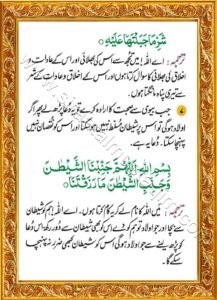 شَرِّ مَا جَبَلْتَهَا عَلَيْهِ
ترجمہ: اے اللہ! میں تجھ سے اس کی بھلائی اور اس کے عادات و
اخلاق کی بھلائی کا سوال کرتا ہوں اور اس کے اخلاق و عادات کے شر سے
تیری پناہ
جب بیوی سے صحبت کا ارادہ کرے تو یہ دعا پڑھ لے پھر اگر
اولاد ہوگی تو اس پر شیطان مسلط نہیں ہو سکتا اور اس کو نقصان نہیں
پہنچا سکتا۔ دعا یہ ہے
بِسْمِ اللهِ اَللّٰهُمَّ جَنِّبْنَا الشَّيْطٰنَ
وَجَنِّبِ الشَّيْطٰنَ مَا رَزَقْتَنَا
ترجمہ: میں اللہ کا نام لے کر یہ کام کرتا ہوں۔ اے اللہ! ہم کو شیطان
سے بچا اور جو اولاد تو ہم کو دے اس کو بھی شیطان سے دور رکھ۔ اس دعا
کو پڑھ لینے سے جو اولاد ہوگی اس کو شیطان کبھی ضرر نہ پہنچا
سکے گا